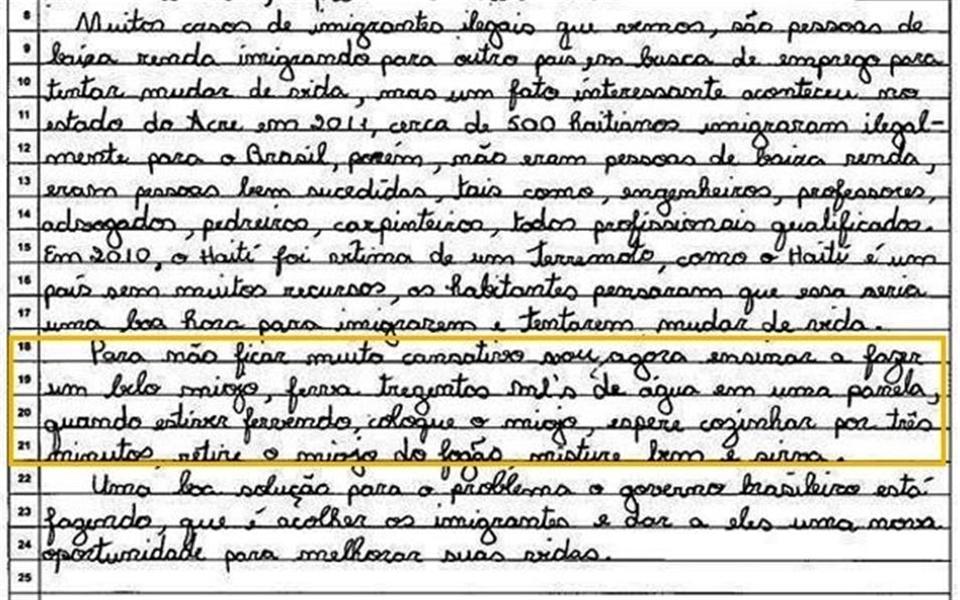 8 Muitos casos de imigrantes ilegais que vemos, são pessoas de
9 baixa renda imigrando para outro país em busca de emprego para
10 tentar mudar de vida, mas um fato interessante aconteceu no
11 estado do Acre em 2011, cerca de 500 haitianos imigraram ilegal-
12 mente para o Brasil, porém, não eram pessoas de baixa renda,
13 eram pessoas bem sucedidas, tais como, engenheiros, professores,
14 advogados, pedreiros, carpinteiros, todos profissionais qualificados.
15 Em 2010, o Haiti foi vítima de um terremoto, como o Haiti é um
16 país sem muitos recursos, os habitantes pensaram que essa seria
17 uma boa hora para imigrarem e tentarem mudar de vida.
18 Para não ficar muito cansativo vou agora ensinar a fazer
19 um belo miojo, ferva trezentos ml's de água em uma panela,
20 quando estiver fervendo, coloque o miojo, espere cozinhar por três
21 minutos, retire o miojo do fogão, misture bem e sirva.
22 Uma boa solução para o problema o governo brasileiro está
23 fazendo, que é acolher os imigrantes e dar a eles uma nova
24 oportunidade para melhorar suas vidas.
25